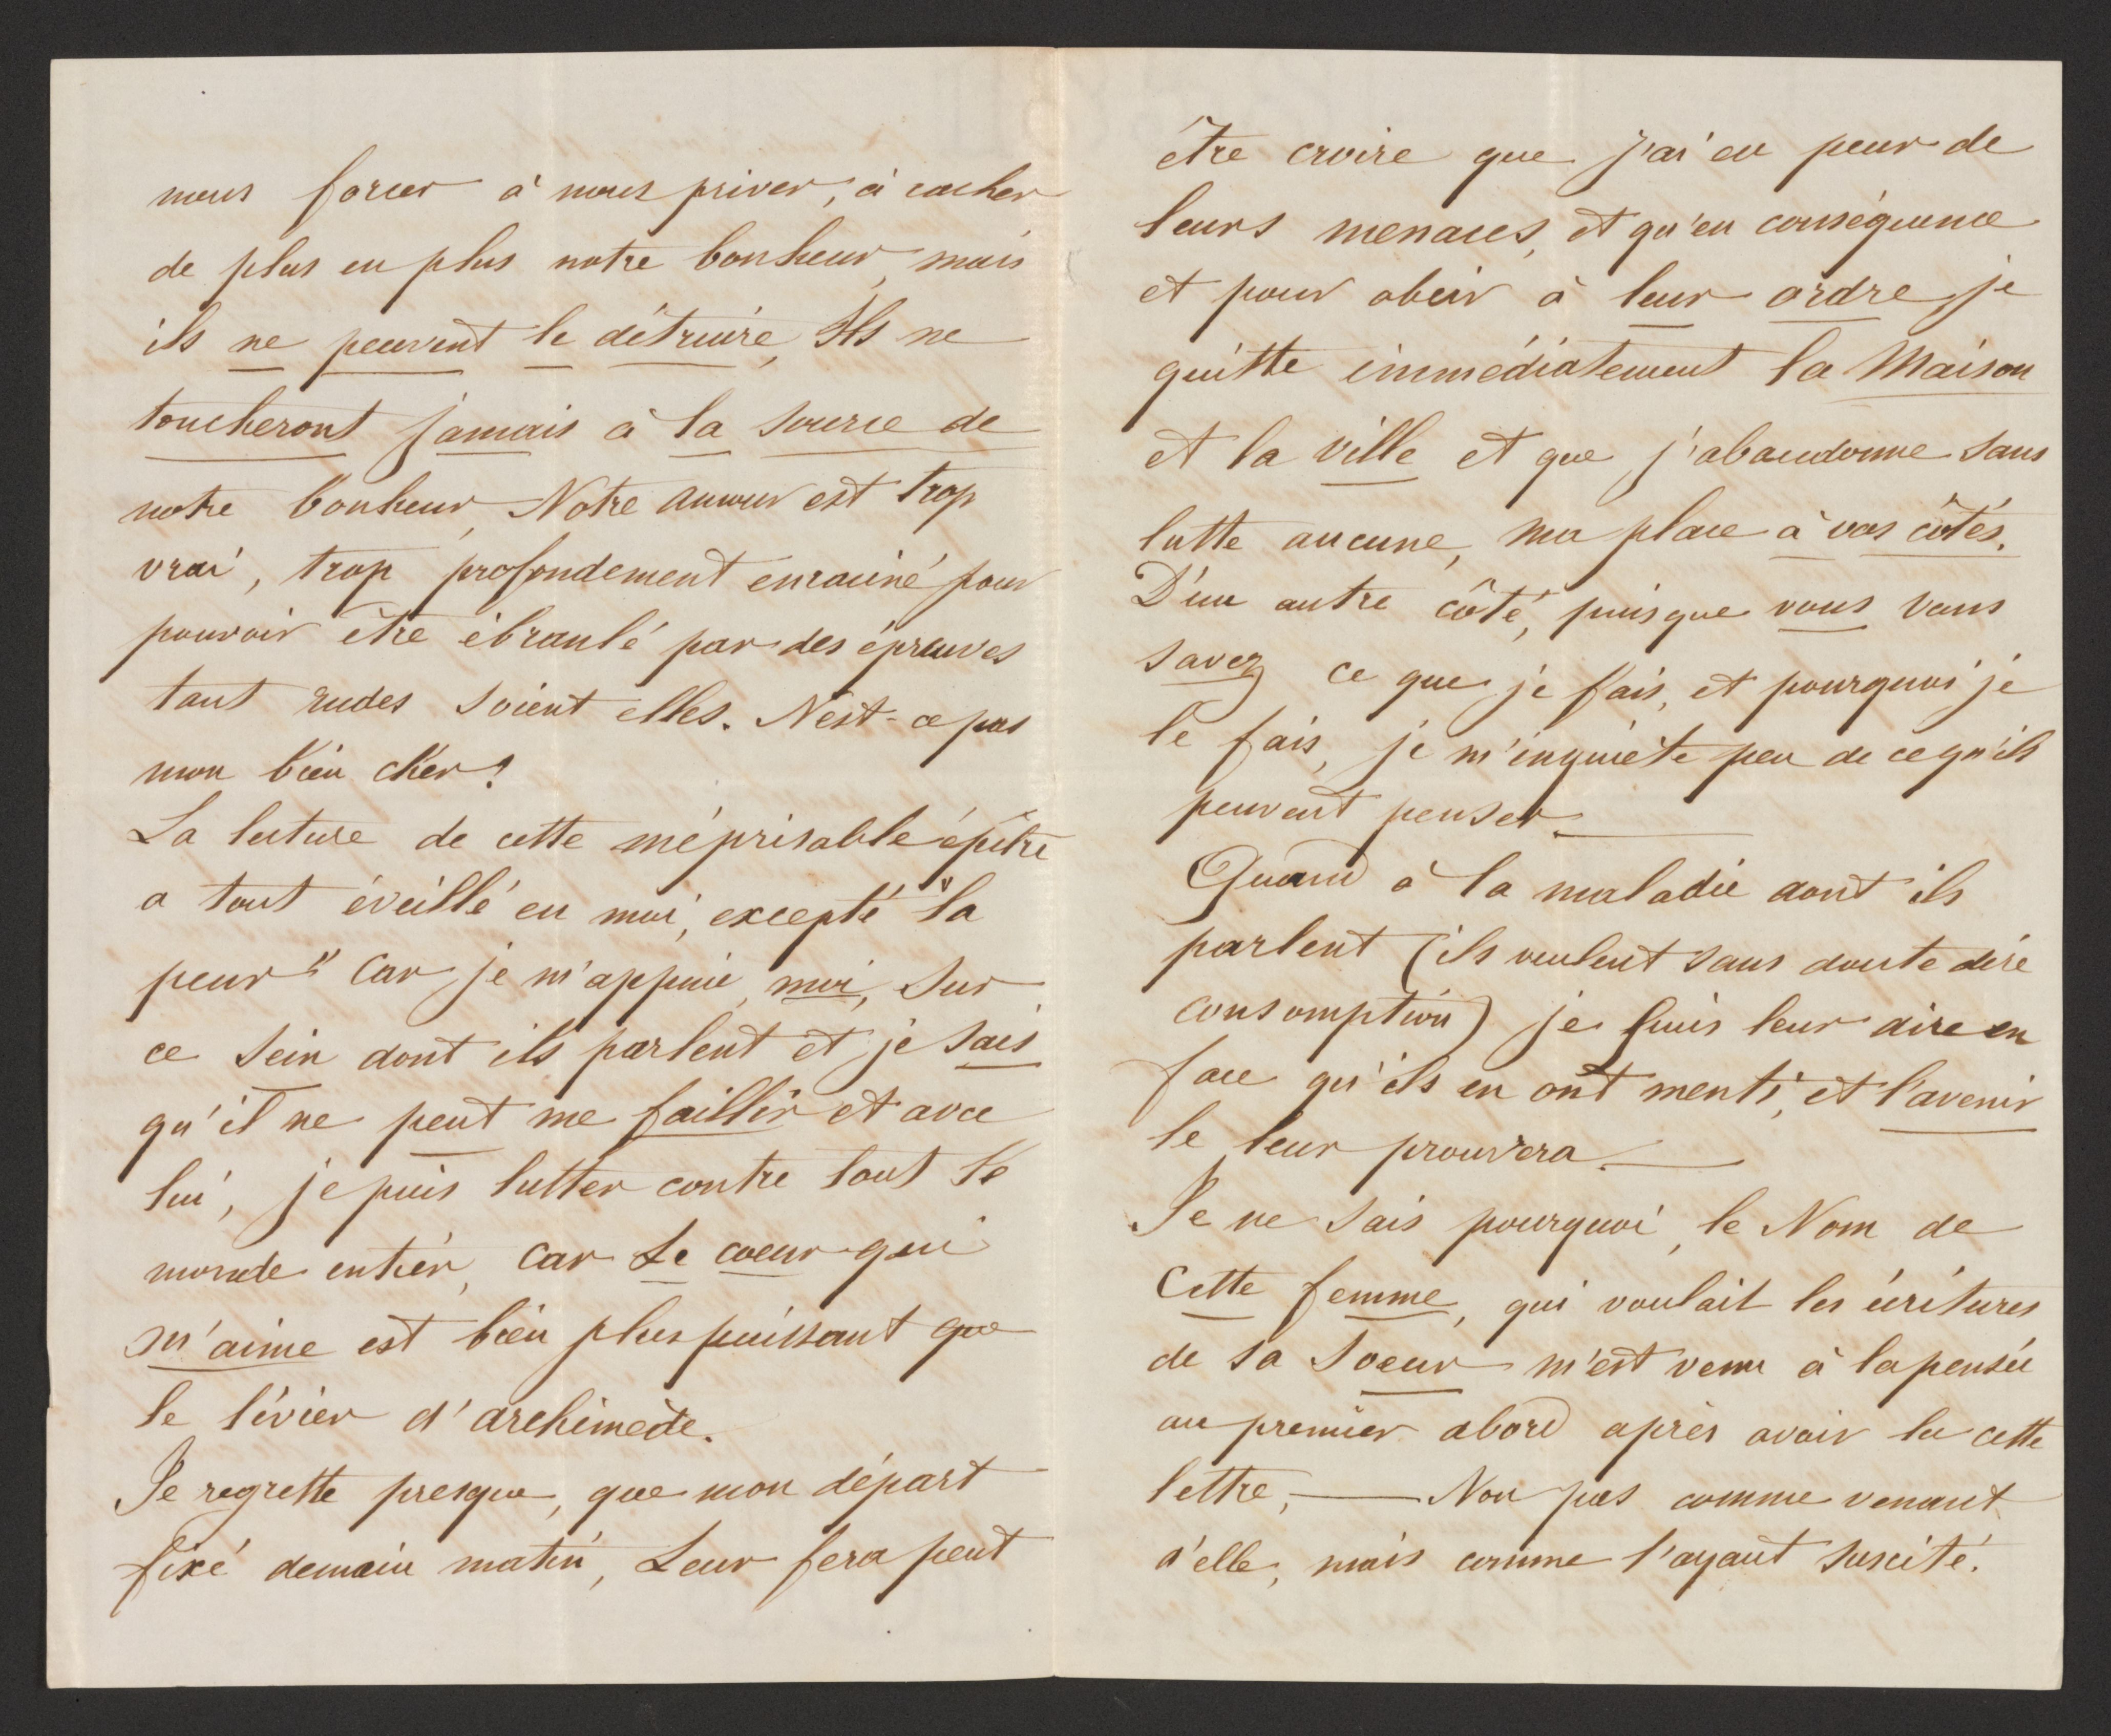 nous forcer à nous priver, à cacher
de plus en plus notre bonheur, mais
ils ne peuvent le détruire, Ils ne
toucheront jamais à la source de
notre bonheur, Notre amour est trop
vrai, trop profondement enraciné pour
pouvoir être ébranlé par des épreuves
tant rudes soient elles. N'est-ce pas
mon bien cher?
La lecture de cette méprisable épitre
a tout éveillé en moi, excepté "la
peur" Car je m'appuie, moi, sur
ce sein dont ils parlent et je sais
qu'il ne peut me faillir et avec
lui, je puis lutter contre tout le
monde entier, car Le coeur qui
m'aime est bien plus puissant que
le lévier d'archimède.
Je regrette presque, que mon départ
fixé demain matin, Leur fera peut
être croire que j'ai eu peur de
leurs menaces, et qu'en conséquence
et pour obeir à leur ordre, je
quitte immédiatement la Maison
et la ville et que j'abandonne sans
lutte aucune, ma place à vos côtés.
D'un autre côté, puisque vous vous
savez ce que je fais, et pourquoi je
le fais, je m'inquiète peu de ce qu'ils
peuvent penser.—
Quand à la maladie dont ils
parlent (ils veulent sans doute dire
consomption) je puis leur dire en
face qu'ils en ont menti, et l'avenir
le leur prouvera.—
Je ne sais pourquoi, le Nom de
Cette femme, qui voulait les écritures
de sa soeur m'est venu à la pensée
au premier abord après avoir lu cette
lettre,— Non pas comme venant
d'elle, mais comme l'ayant suscité.